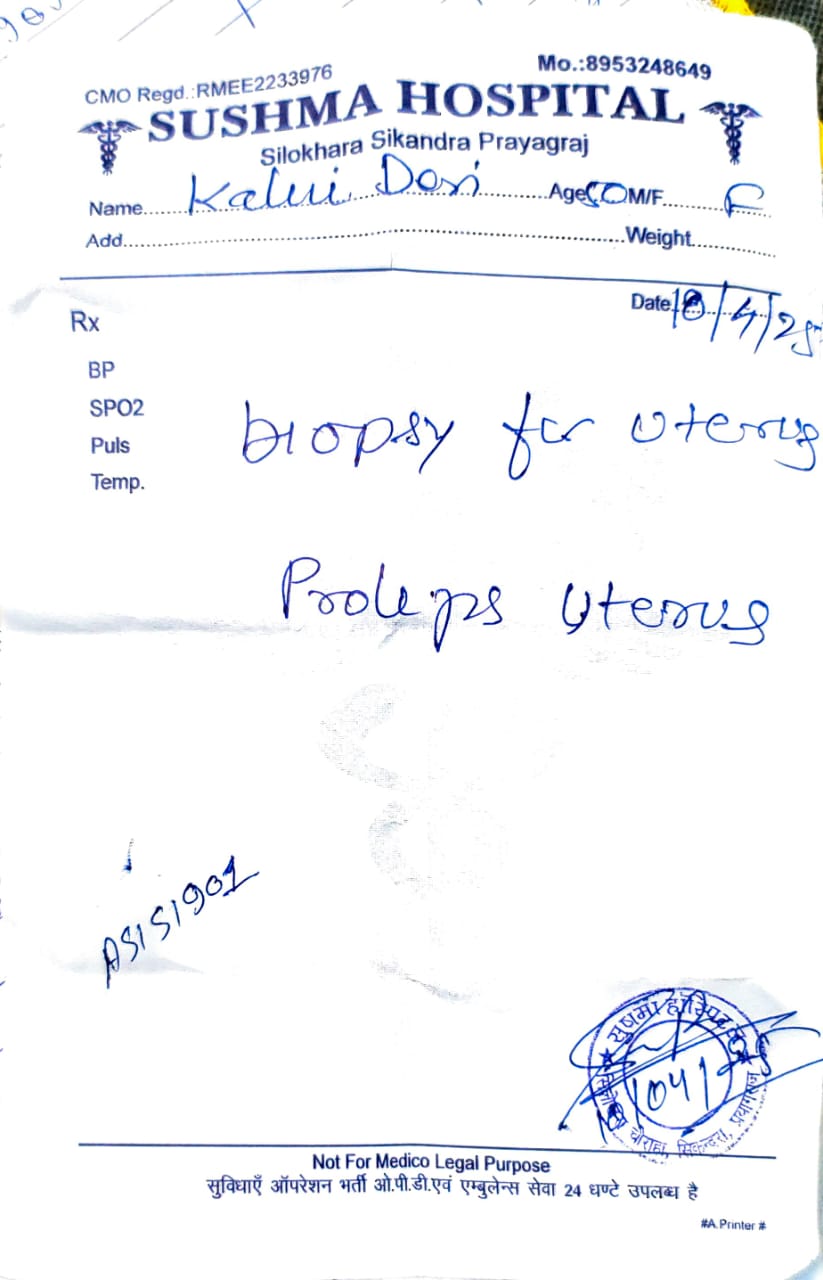 CMO Regd.:RMEE2233976
Mo.:8953248649
SUSHMA HOSPITAL
Silokhara Sikandra Prayagraj
Name Age M/F F
Add Weight
Date
Rx
BP
SPO2
Puls
Temp.
biopsy for uterus
Proleps uterus
सुषमा हॉस्पिटल
चौराहा, सिकन्दरा, प्रयागराज
Not For Medico Legal Purpose
सुविधाएँ ऑपरेशन भर्ती ओ.पी.डी.एवं एम्बुलेन्स सेवा 24 घण्टे उपलब्ध है
#A.Printer #